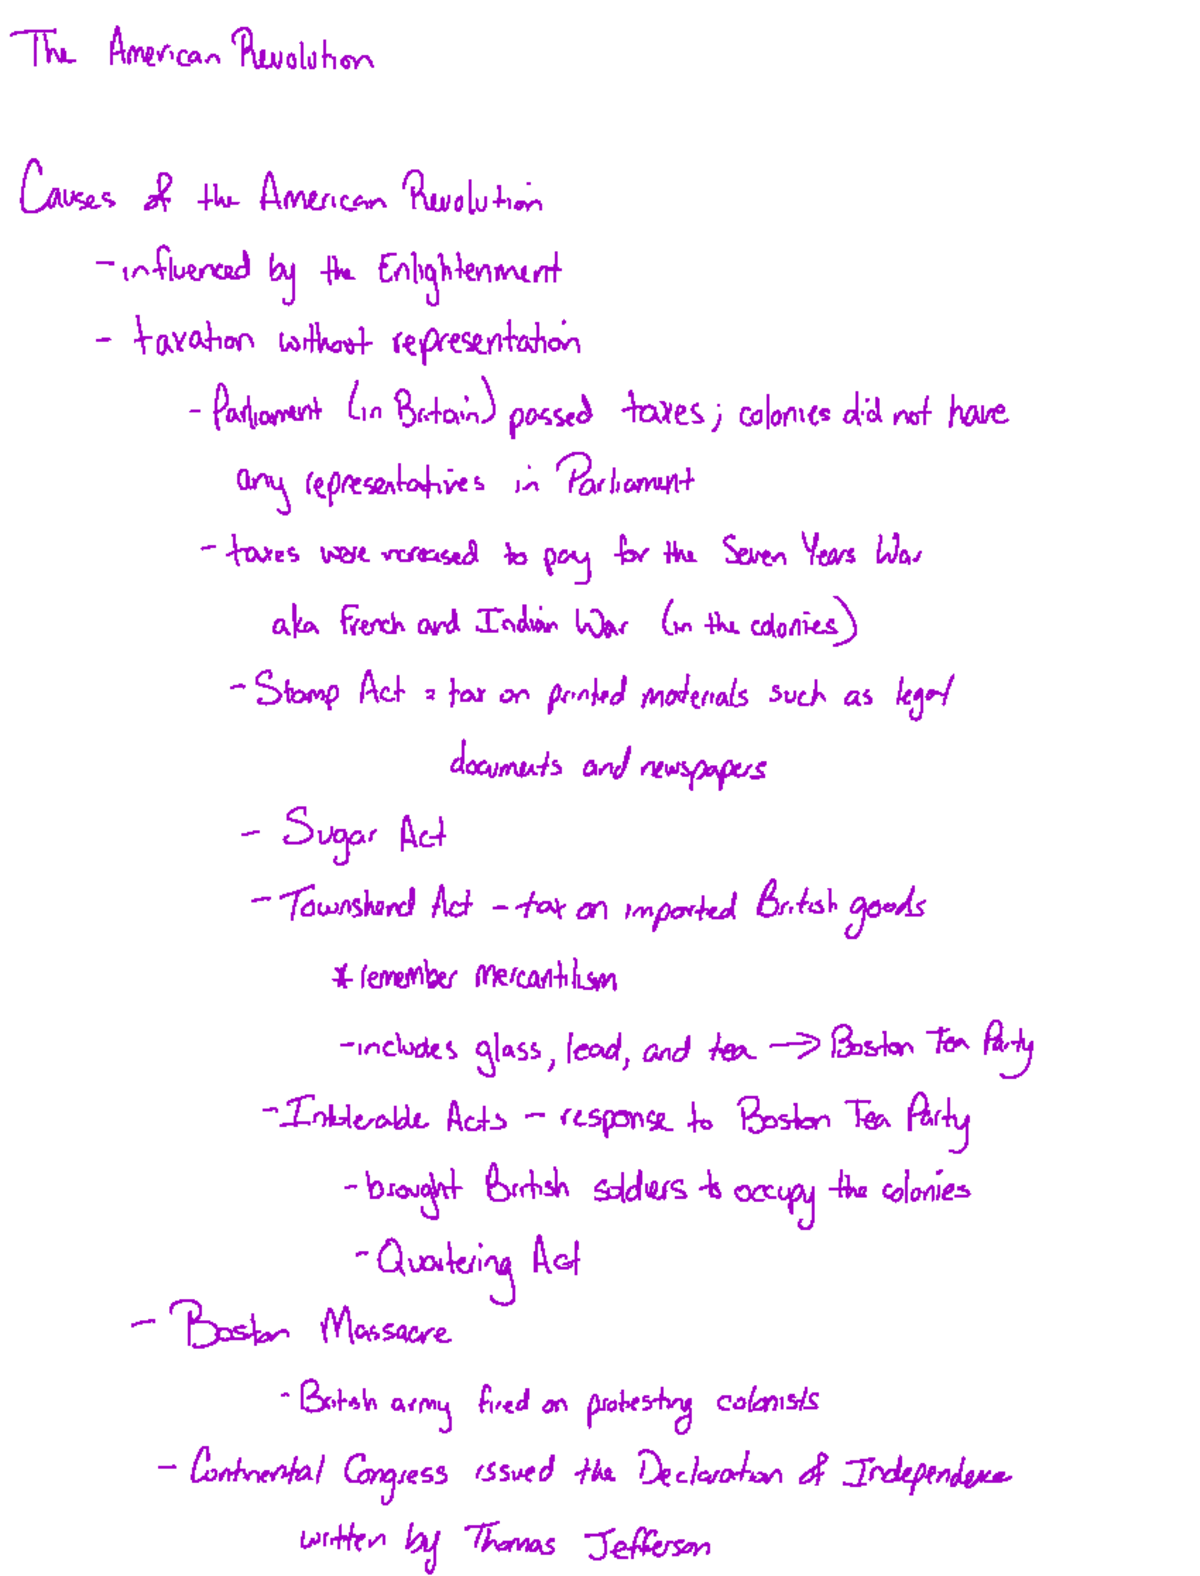 The American Revolution
Causes of the American Revolution
- influenced by the Enlightenment
- taxation without representation
- Parliament (in Britain) passed taxes; colonies did not have
any representatives in Parliament
- taxes were increased to pay for the Seven Years War
aka French and Indian War (in the colonies)
- Stamp Act = tax on printed materials such as legal
documents and newspapers
- Sugar Act
- Townshend Act - tax on imported British goods
* remember mercantilism
- includes glass, lead, and tea → Boston Tea Party
- Intolerable Acts - response to Boston Tea Party
- brought British soldiers to occupy the colonies
- Quartering Act
- Boston Massacre
- British army fired on protesting colonists
- Continental Congress issued the Declaration of Independence
written by Thomas Jefferson